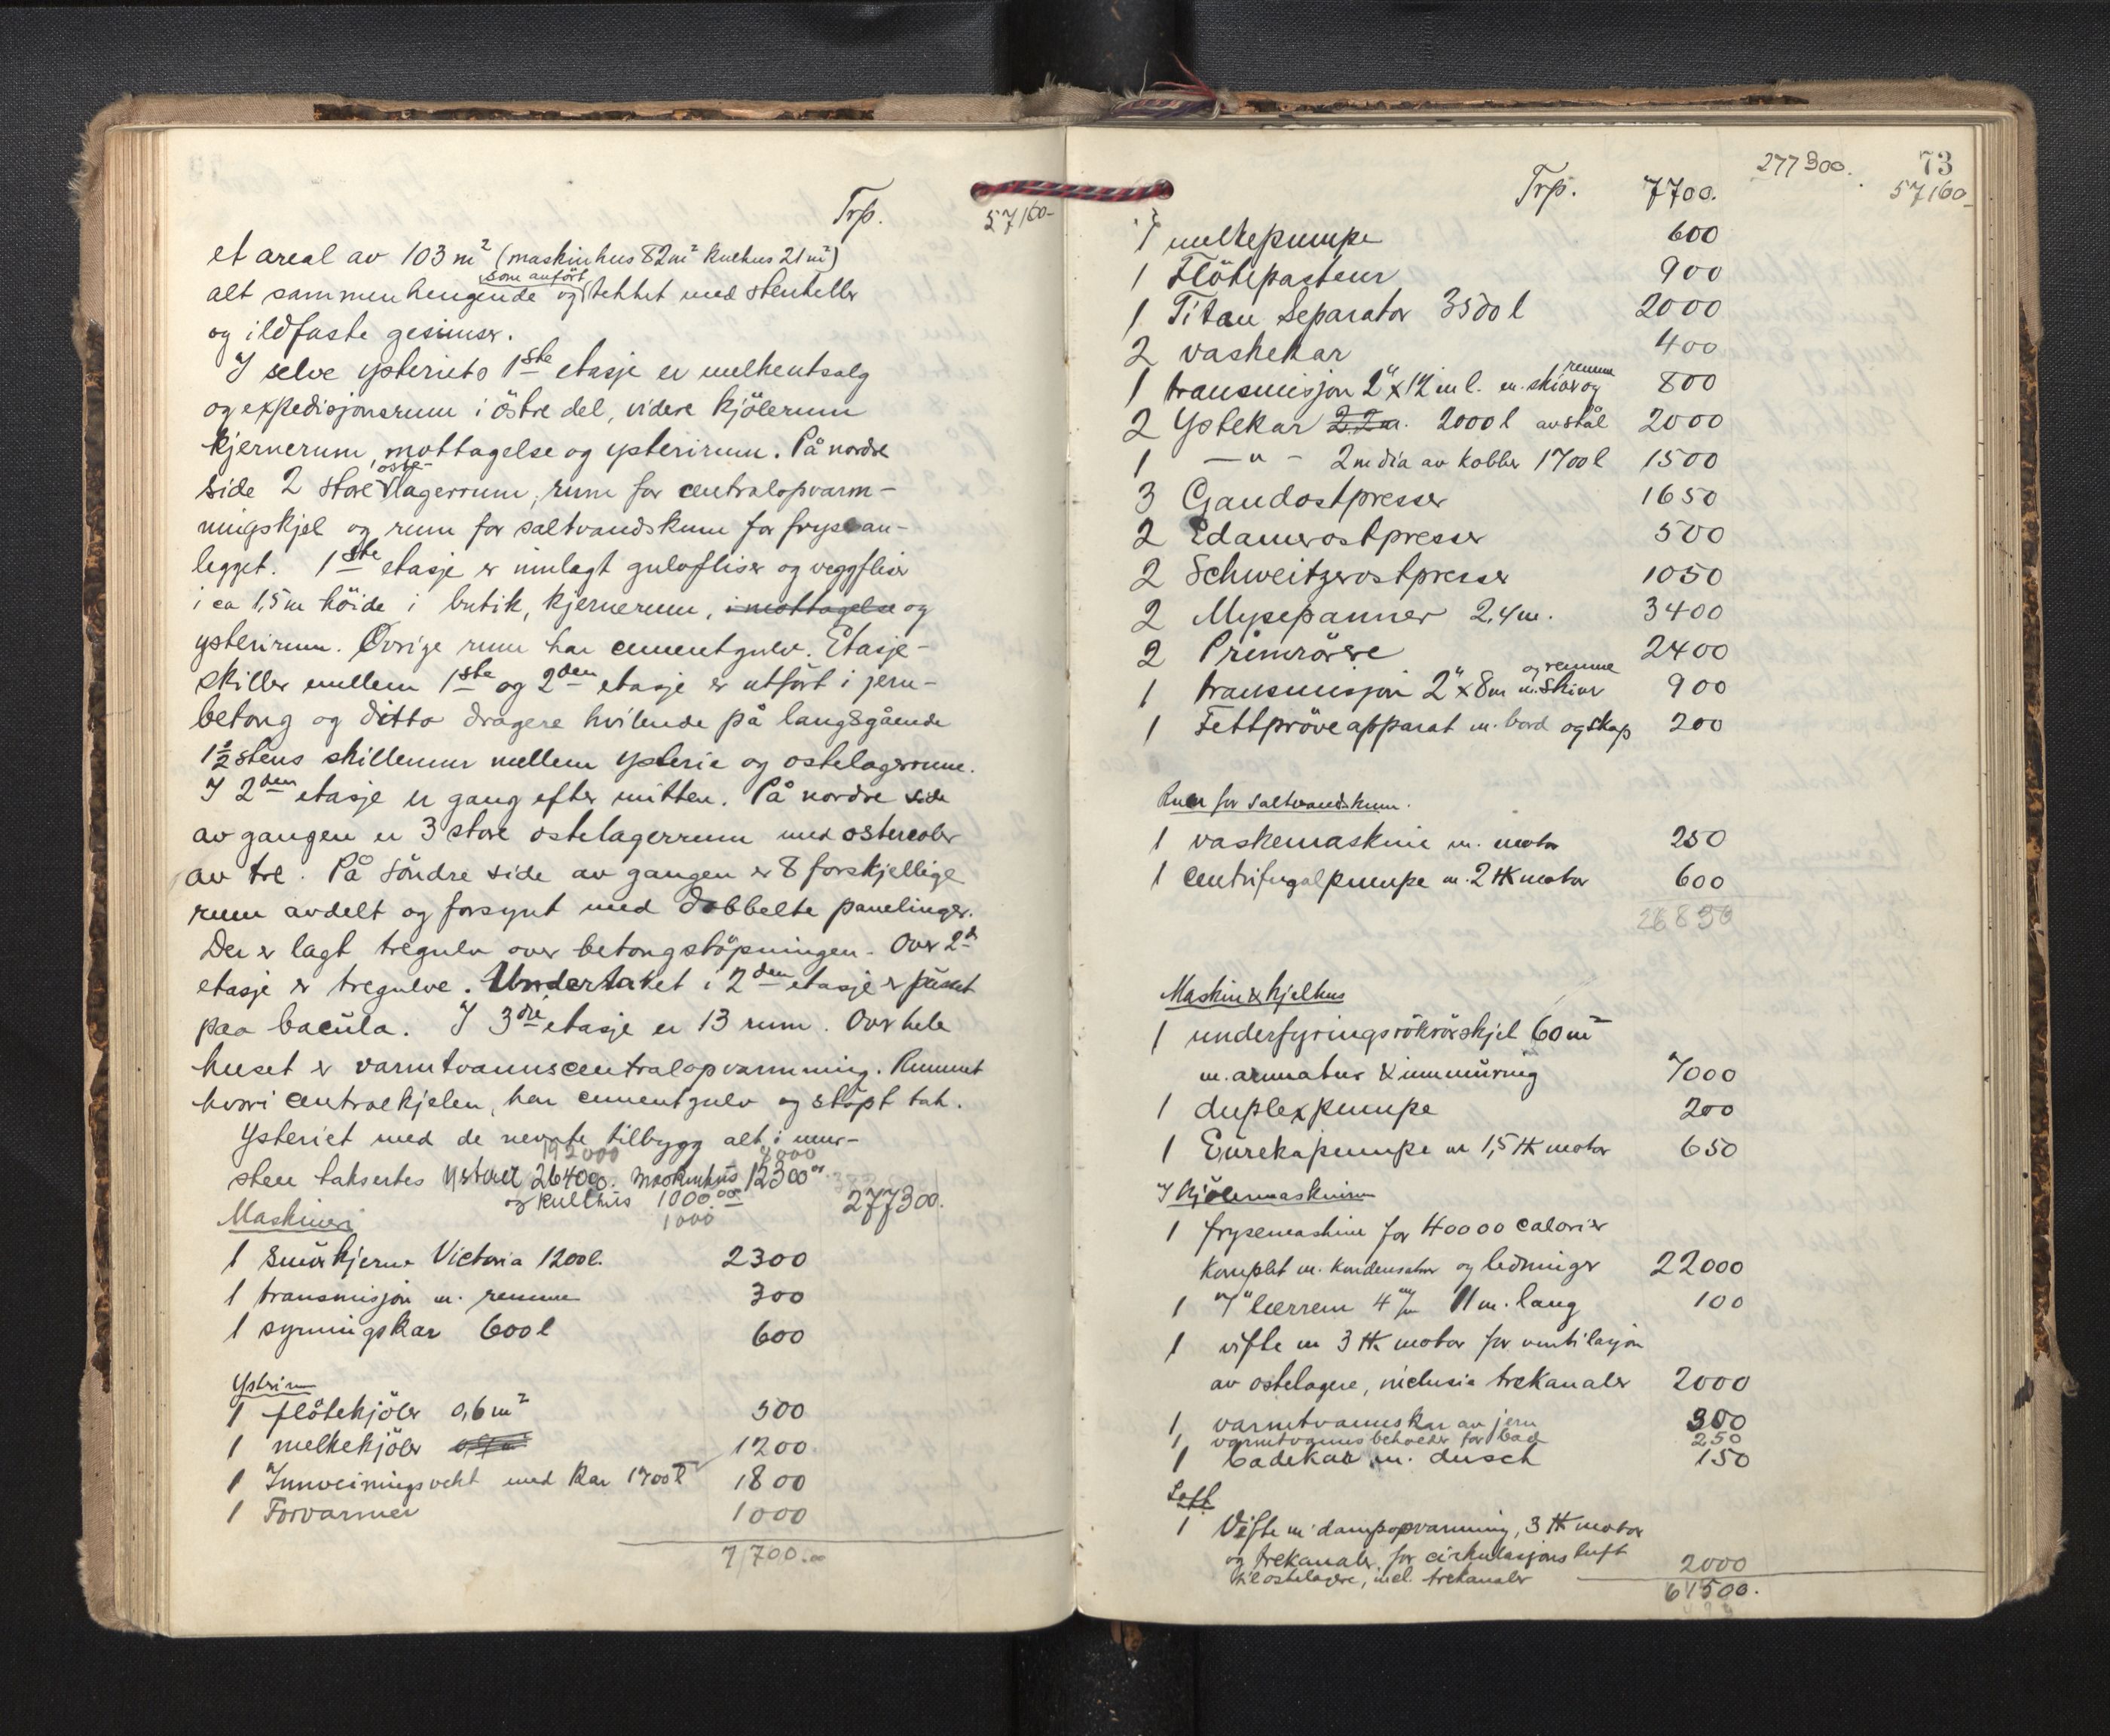 Trp. 57160-
et areal av 103 m² (maskinhus 82 m² kulhus 21 m²)
som anfört
alt sammenhengende og tekket med stenheller
og ildfaste gesimser.
I selve ysteriets 1ste etasje er melkeutsalg
og expedisjonsrum i östre del, videre kjölerum
kjernerum, mottagelse og ysterirum. På nordre
oste-
side 2 store lagerrum, rum for centralopvarm-
ningskjel og rum for saltvandskum for fryse an-
legget. 1ste etasje er innlagt gulvfliser og veggfliser
i ca 1,5 m höide i butik, kjernerum, i mottagelse og
ysterirum. Øvrige rum har cementgulv. Etasje-
skiller mellem 1ste og 2den etasje er utfört i jern-
betong og ditto dragere hvilende på langsgående
1½ stens skillemur mellem ysterie og ostelagerrum.
I 2den etasje er gang efter mitten. På nordre side
av gangen er 3 store ostelagerrum med ostereoler
av tre. På söndre side av gangen er 8 forskjellige
rum avdelt og forsynt med dobbelte panelinger.
Der er lagt tregulv over betongstöpningen. Over 2d
etasje er tregulve. Undertaket i 2den etasje er pusset
paa bacula. I 3die etasje er 13 rum. Over hele
huset er varmtvannscentralopvarmning. Rummet
hvori centralkjelen, har cementgulv og stöpt tak.
Ysteriet med de nevnte tilbygg alt i mur-
192000 8000
sten taksertes ysteriet 264000. maskinhus 12300
og kullhus 1000.00 277300.
1000
Maskineri
1 Smörkjerne Victoria 1200 l. 2300
1 transmisjon m. remme 300
1 syrningskar 600 l 600
Ysterirum
1 flötekjöler 0,6 m² 500
1 melkekjöler 1200
1 Innveiningsvekt med kar 1700 l 1800
1 Forvarmer 1000
7700.00
277300. 73
Trp. 7700. 57160-
1 melkepumpe 600
1 Flötepasteur 900
1 Titan Separator 3500 l 2000
2 vaskekar 400
remme
1 transmisjon 2" x 12 m l. m. skiver og 800
2 Ystekar 2.2 m. 2000 l av stål 2000
1 — " — 2 m dia av kobber 1700 l 1500
3 Gaudostpresser 1650
2 Edamerostpresser 500
2 Schweitzerostpresser 1050
2 Mysepanner 2,4 m. 3400
2 Primrörere 2400
og remme
1 transmisjon 2" x 8 m m. skiver 900
1 Fettpröveapparat m. bord og skap 200
Rum for saltvandskum.
1 vaskemaskine m. motor 250
1 centrifugalpumpe m. 2 HK motor 600
26850
Maskin & kjelhus
1 underfyringsrökrörskjel 60 m²
m. armatur & innmuring 7000
1 duplexpumpe 200
1 Eurekapumpe m 1,5 HK motor 650
I kjölemaskinrum
1 frysemaskine for 40000 calorier
komplet m. kondensator og ledninger 22000
1 7" lærrem 4 m/m 11 m. lang 100
1 vifte m 3 HK motor for ventilasjon
av ostelagere, inclusiv trekanaler 2000
1 varmtvannskar av jern 300
1 varmtvannsbeholder for bad 250
1 badekar m. dusch 150
Loft
1 Vifte m dampopvarmning, 3 HK motor
og trekanaler for cirkulasjonsluft
til ostelagere, incl. trekanaler 2000
61500.